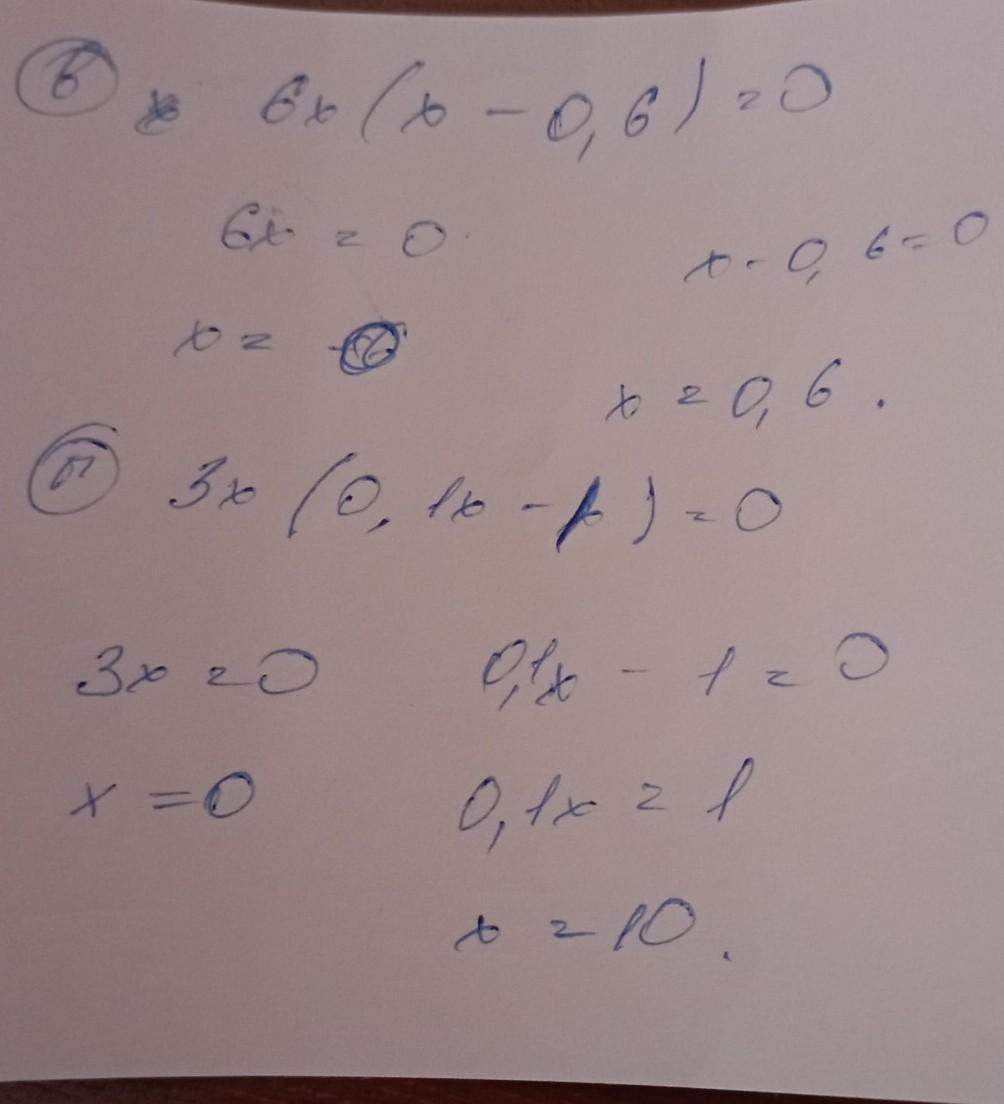 б 6x(x - 0,6) = 0
6x = 0 x - 0,6 = 0
x = x = 0,6.
3x (0,1x - 1) = 0
3x = 0 0,1x - 1 = 0
x = 0 0,1x = 1
x = 10.